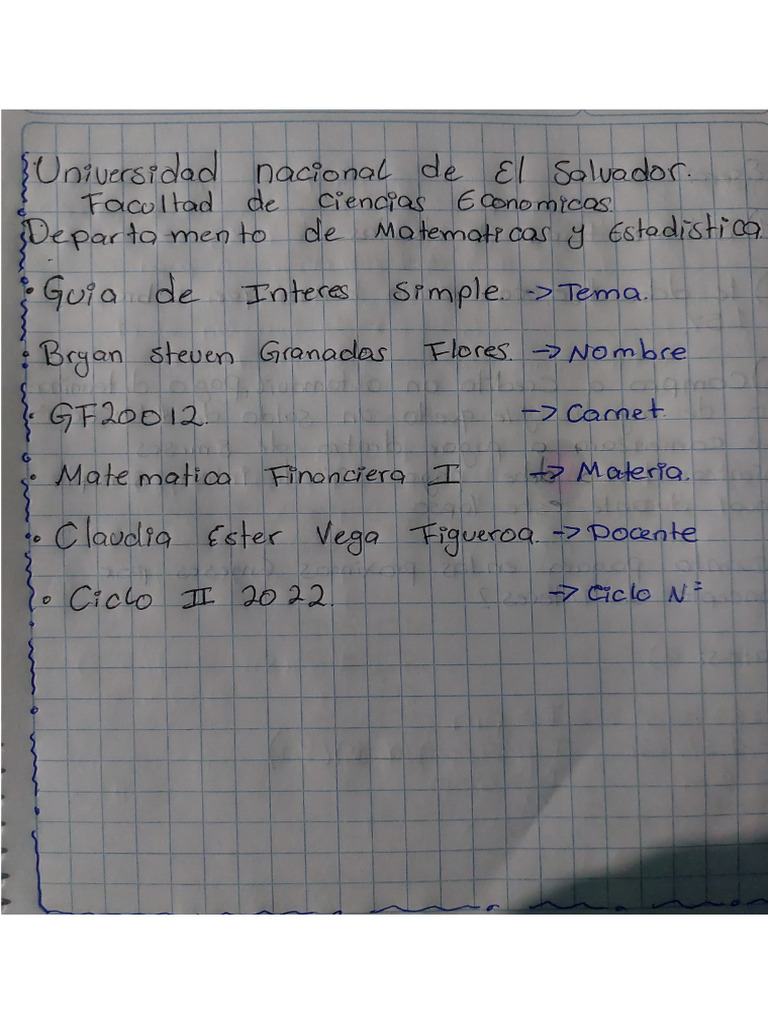 Universidad nacional de El Salvador.
Facultad de Ciencias Economicas.
Departamento de Matematicas y Estadistica
Guia de Interes Simple. -> Tema.
Bryan Steven Granados Flores. -> Nombre
GF20012. -> Carnet.
Matematica Financiera I -> Materia.
Claudia Ester Vega Figueroa. -> Docente
Ciclo II 2022. -> Ciclo Nº